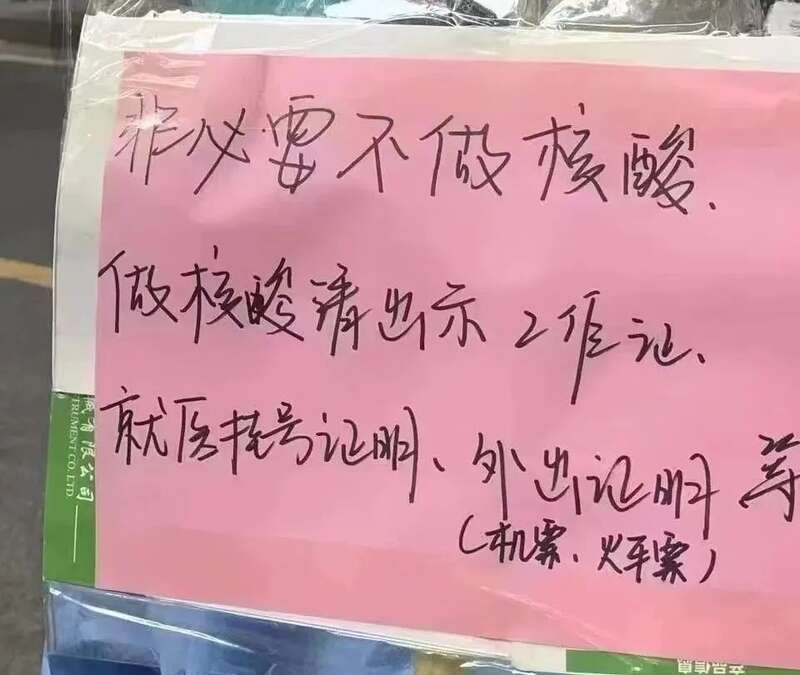 非必要不做核酸.
做核酸请出示工作证、
就医挂号证明、外出证明等
(机票、火车票)
械有限公司
TRUMENT CO.LTD.
产品信息